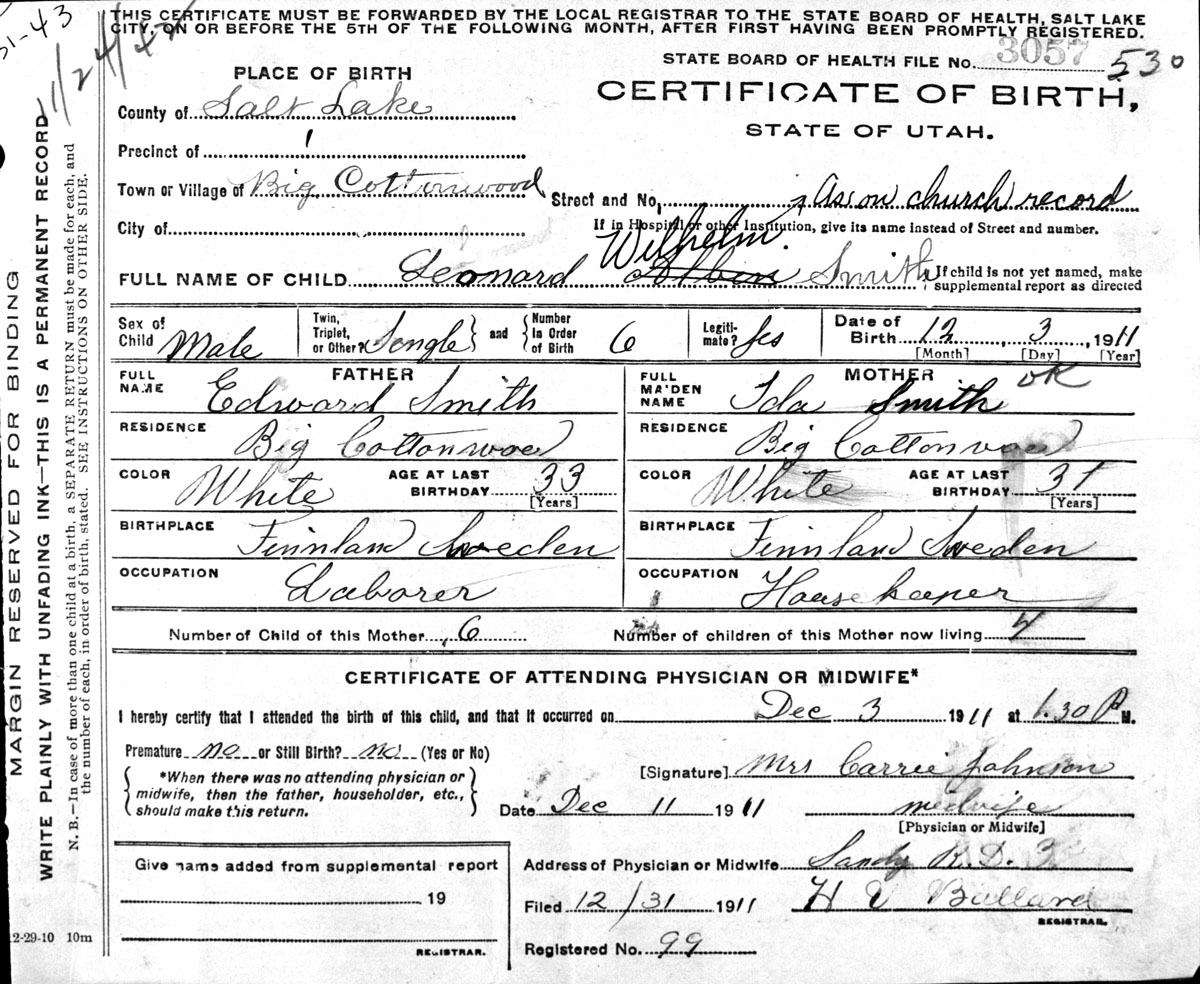 THIS CERTIFICATE MUST BE FORWARDED BY THE LOCAL REGISTRAR TO THE STATE BOARD OF HEALTH, SALT LAKE
CITY, ON OR BEFORE THE 5TH OF THE FOLLOWING MONTH, AFTER FIRST HAVING BEEN PROMPTLY REGISTERED.
STATE BOARD OF HEALTH FILE No. 3057 530
PLACE OF BIRTH
CERTIFICATE OF BIRTH,
STATE OF UTAH.
County of Salt Lake
Precinct of 1
Town or Village of Big Cottonwood
Street and No. As on church record
City of
If in Hospital or other Institution, give its name instead of Street and number.
Wilhelm
FULL NAME OF CHILD Leonard Albin Smith
If child is not yet named, make
supplemental report as directed
Sex of Child Male
Twin, Triplet, or Other? Single and Number in Order of Birth 6
Legitimate? Yes
Date of Birth 12 3 1911
[Month] [Day] [Year]
FATHER
FULL NAME Edward Smith
MOTHER OK
FULL MAIDEN NAME Ida Smith
RESIDENCE Big Cottonwood
RESIDENCE Big Cottonwood
COLOR White AGE AT LAST BIRTHDAY 33 [Years]
COLOR White AGE AT LAST BIRTHDAY 31 [Years]
BIRTHPLACE Finnland Sweden
BIRTHPLACE Finnland Sweden
OCCUPATION Laborer
OCCUPATION Housekeeper
Number of Child of this Mother 6 Number of children of this Mother now living 4
CERTIFICATE OF ATTENDING PHYSICIAN OR MIDWIFE*
I hereby certify that I attended the birth of this child, and that it occurred on Dec 3 1911 at 1.30 P M.
Premature no or Still Birth? no (Yes or No)
*When there was no attending physician or
midwife, then the father, householder, etc.,
should make this return.
[Signature] Mrs Carrie Johnson
Date Dec 11 1911 midwife
[Physician or Midwife]
Give name added from supplemental report
19
REGISTRAR.
Address of Physician or Midwife Sandy R.D. 3
Filed 12/31 1911 H V Ballard
REGISTRAR.
Registered No. 99
2-29-10 10m
MARGIN RESERVED FOR BINDING
WRITE PLAINLY WITH UNFADING INK—THIS IS A PERMANENT RECORD
N. B.—In case of more than one child at a birth, a SEPARATE RETURN must be made for each, and
the number of each, in order of birth, stated. SEE INSTRUCTIONS ON OTHER SIDE.